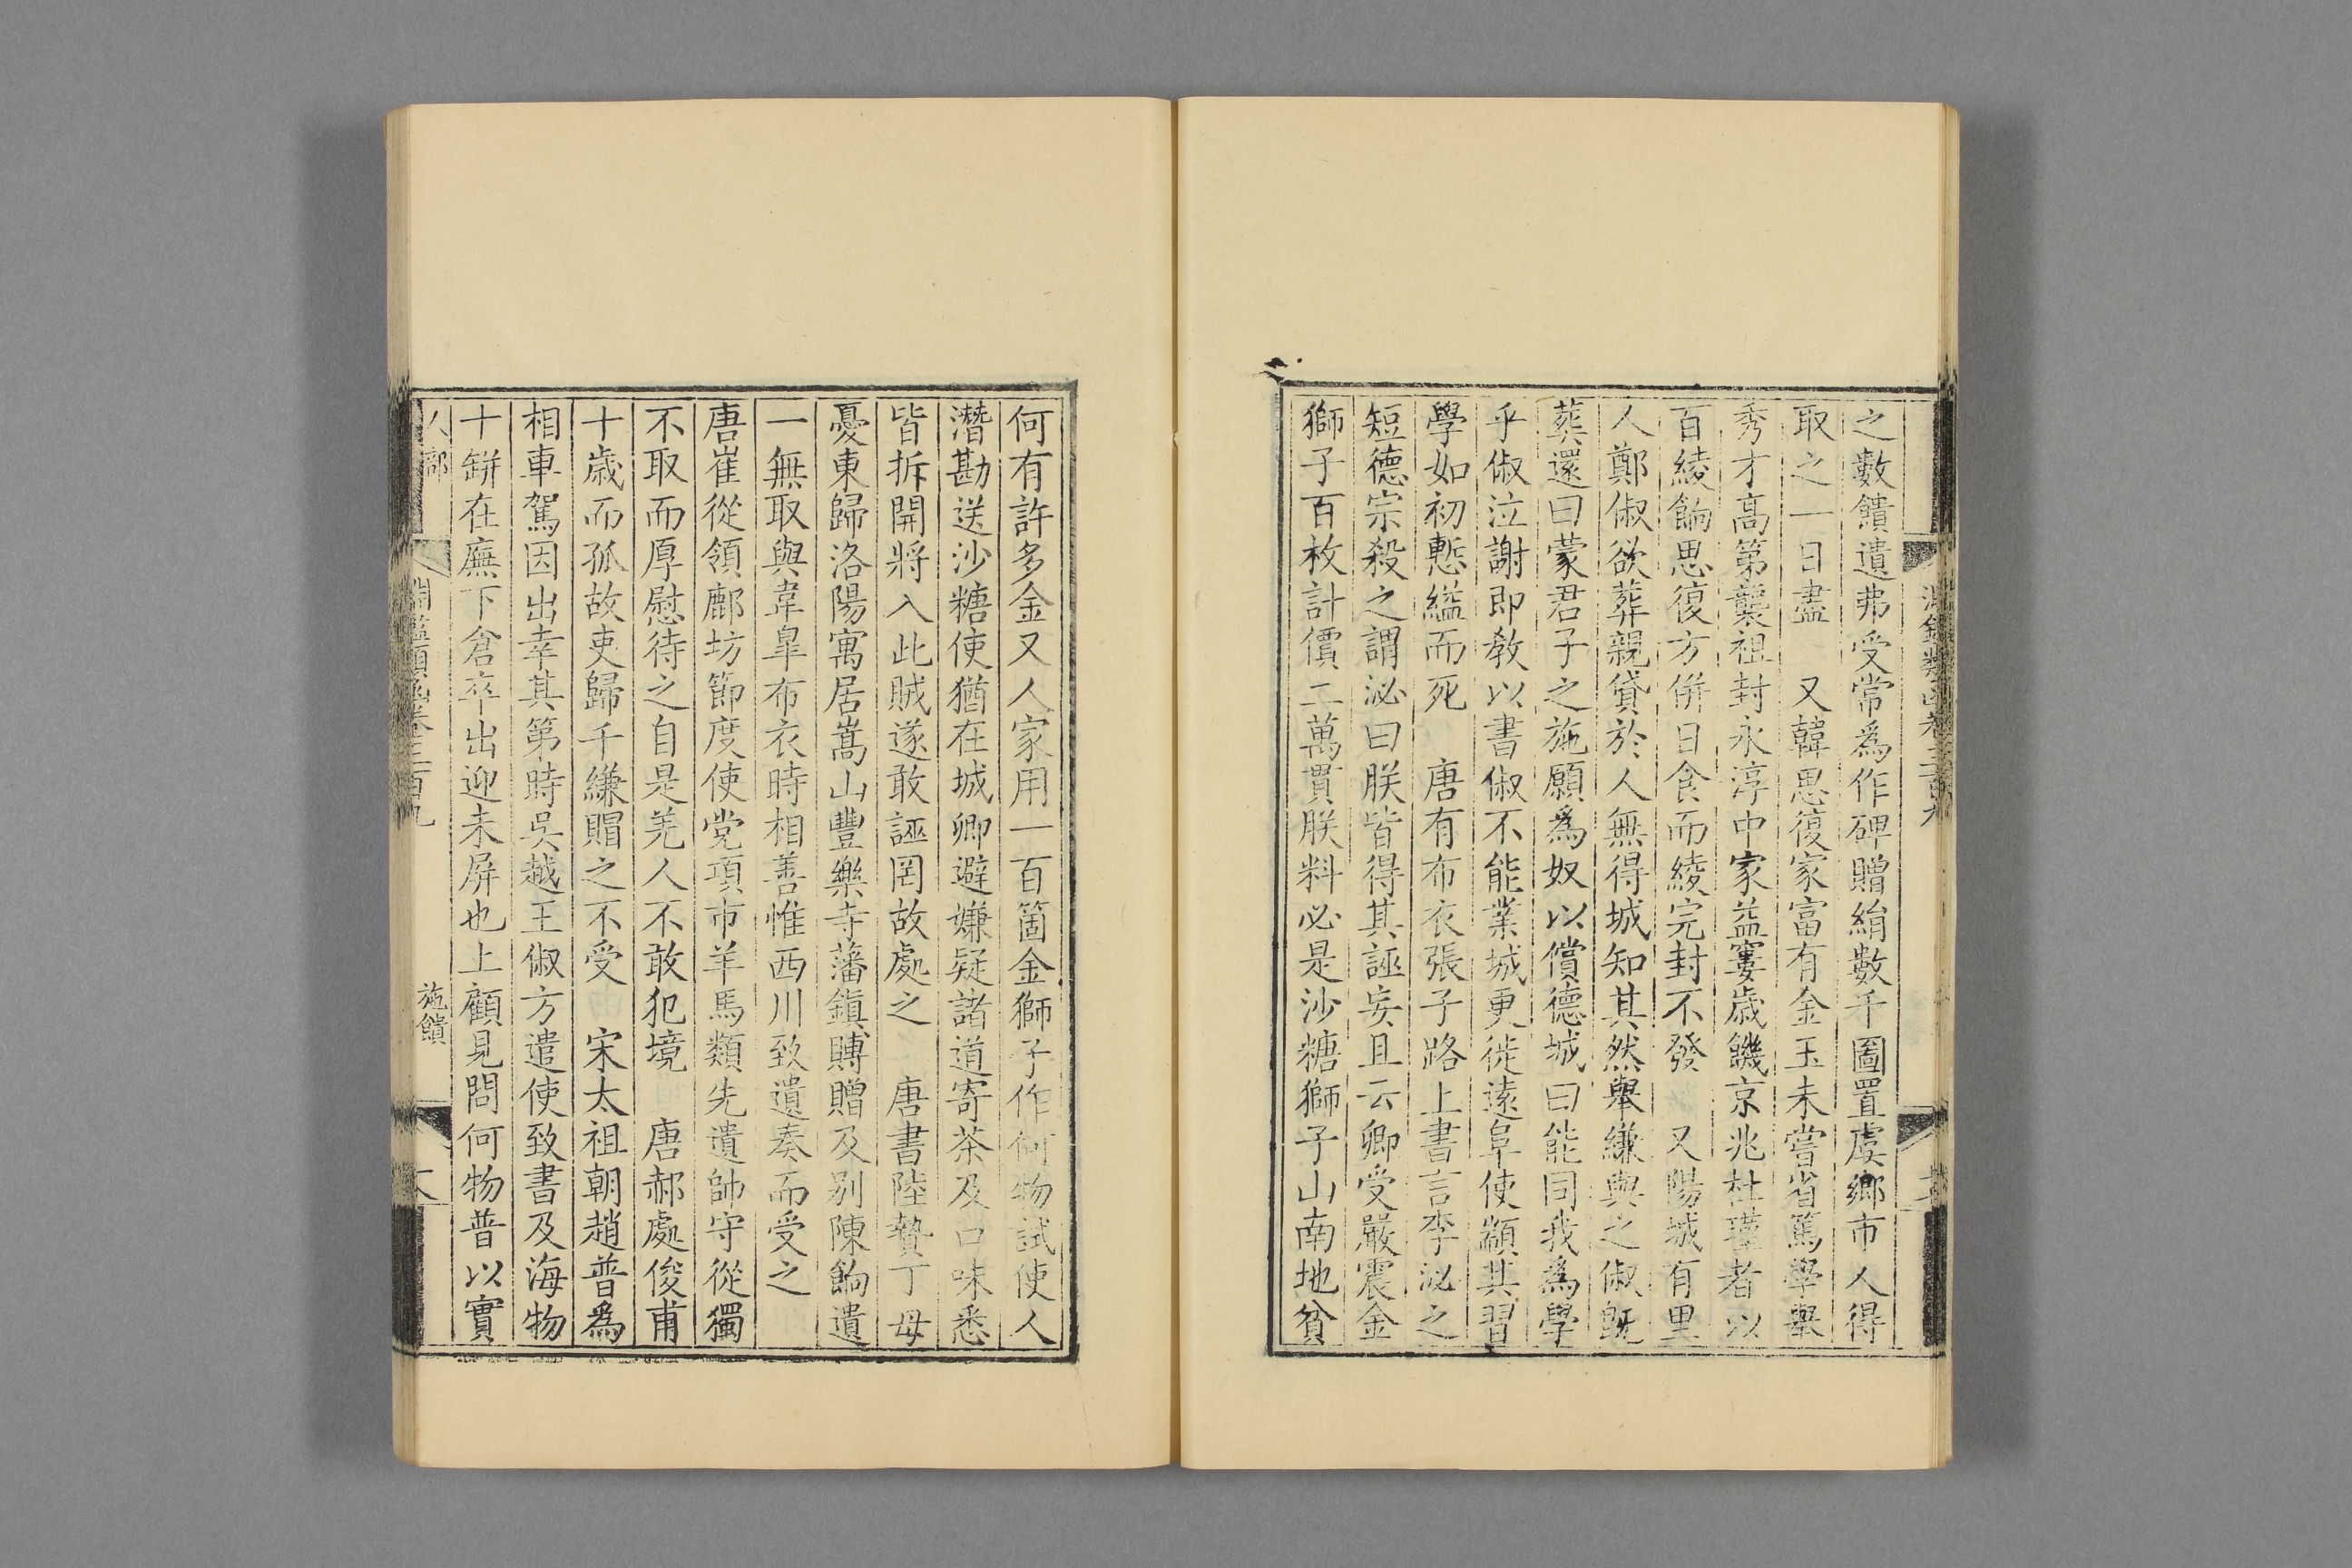 之數饋遺弗受常爲作碑贈絹數千圖置虔鄉市人得
取之一日盡　又韓思復家富有金玉未嘗省篤學舉
秀才高第襲祖封永淳中家益窶歲饑京兆杜瑾者以
百綾餉思復方併日食而綾完封不發　又陽城有里
人鄭俶欲葬親貸於人無得城知其然舉縑與之俶旣
葬還曰蒙君子之施願爲奴以償德城曰能同我爲學
乎俶泣謝即教以書俶不能業城更徙遠阜使顓其習
學如初慙縊而死　唐有布衣張子路上書言李泌之
短德宗殺之謂泌曰朕皆得其誣妄且云卿受嚴震金
獅子百枚計價二萬貫朕料必是沙糖獅子山南地貧
何有許多金又人家用一百箇金獅子作何物試使人
潛勘送沙糖使猶在城卿避嫌疑諸道寄茶及口味悉
皆拆開將入此賊遂敢誣罔故處之　唐書陸贄丁母
憂東歸洛陽寓居嵩山豐樂寺藩鎮賻贈及别陳餉遺
一無取與韋臯布衣時相善惟西川致遺奏而受之
唐崔從領鄜坊節度使党項市羊馬類先遺帥守從獨
不取而厚慰待之自是羌人不敢犯境　唐郝處俊甫
十歲而孤故吏歸千縑賵之不受　宋太祖朝趙普爲
相車駕因出幸其第時吳越王俶方遣使致書及海物
十缾在廡下倉卒出迎未屏也上顧見問何物普以實
人部　淵鑑類函卷三百九　施饋